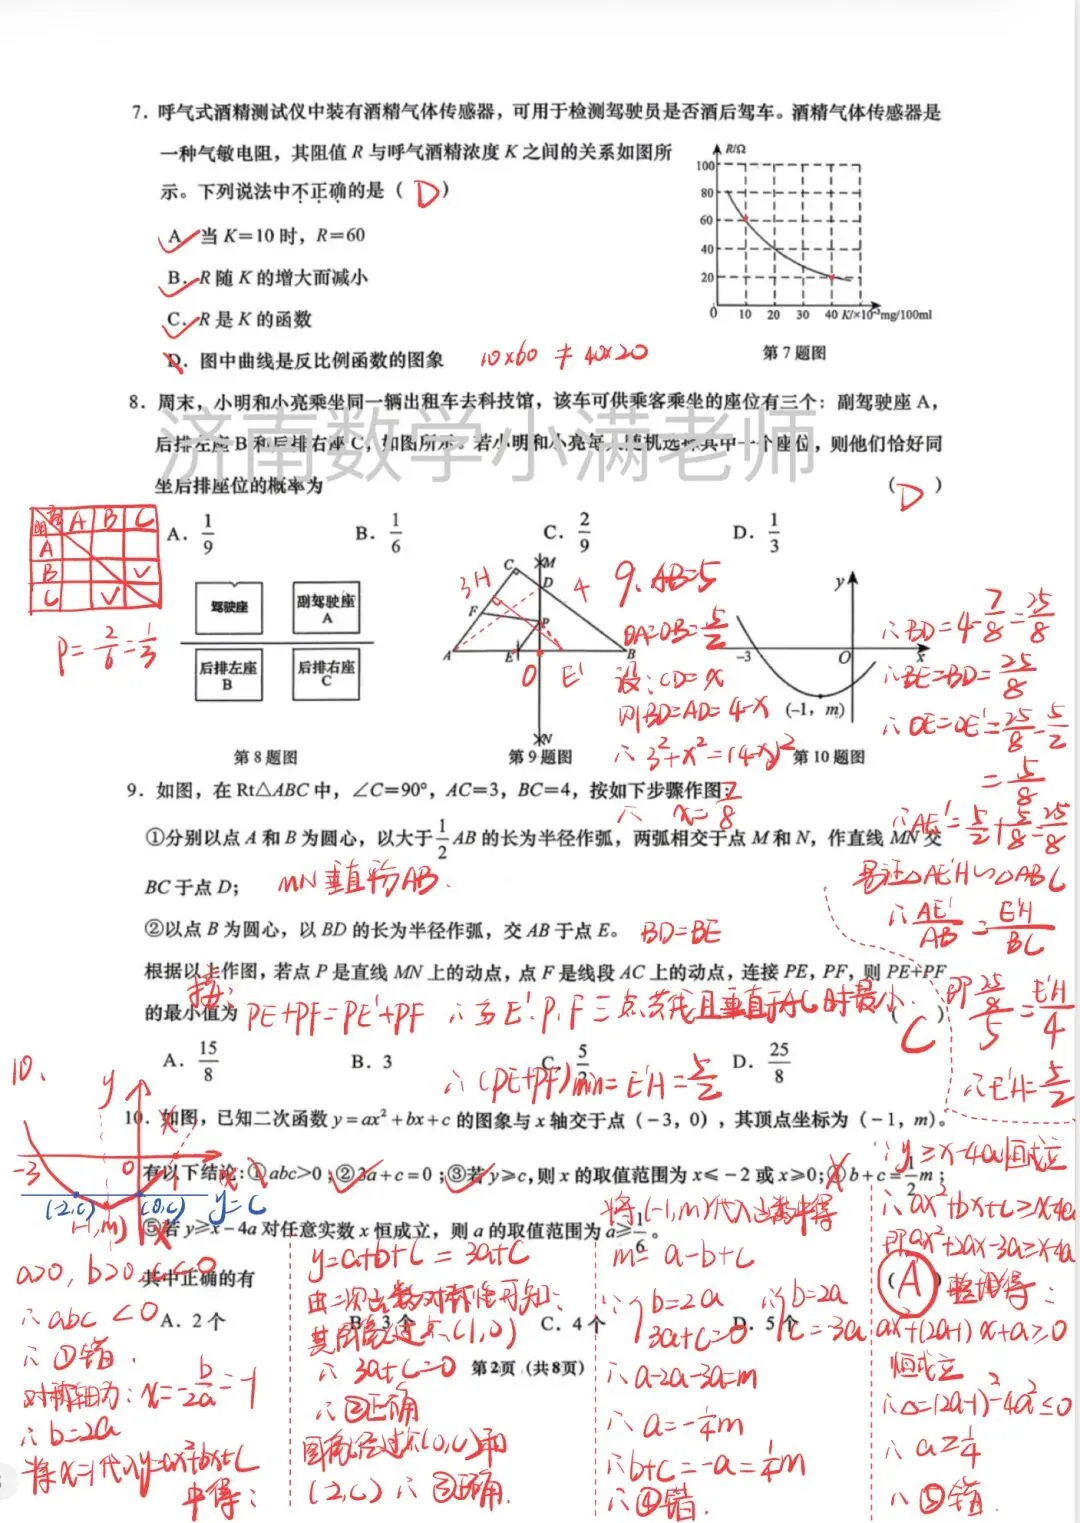 7. 呼气式酒精测试仪中装有酒精气体传感器，可用于检测驾驶员是否酒后驾车。酒精气体传感器是
一种气敏电阻，其阻值 R 与呼气酒精浓度 K 之间的关系如图所
示。下列说法中不正确的是（ D ）
A. 当 K=10 时，R=60
B. R 随 K 的增大而减小
C. R 是 K 的函数
D. 图中曲线是反比例函数的图象 10×60 ≠ 40×20
R/Ω
100
80
60
40
20
0 10 20 30 40 K/×10⁻³mg/100ml
第 7 题图
8. 周末，小明和小亮乘坐同一辆出租车去科技馆，该车可供乘客乘坐的座位有三个：副驾驶座 A，
后排左座 B 和后排右座 C，如图所示。若小明和小亮每人随机选择其中一个座位，则他们恰好同
坐后排座位的概率为 （ D ）
济南数学小满老师
A. 1/9 B. 1/6 C. 2/9 D. 1/3
A B C
A
B √
C √
P= 2/6 = 1/3
驾驶座 副驾驶座 A
后排左座 B 后排右座 C
第 8 题图
C M D 3 H 4 F P A E O E' B N
第 9 题图
y -3 O x (-1, m)
第 10 题图
9. AB=5
OA=OB=5/2
设: CD=x
则BD=AD=4-x
∴ 3²+x²=(4-x)²
∴ x=7/8
∴BD=4-7/8=25/8
∴BE=BD=25/8
∴OE=OE'=25/8-5/2
=5/8
∴AE'=5/2+5/8=25/8
易证△AE'H∽△ABC
∴AE'/AB=E'H/BC
即 25/8/5=E'H/4
∴E'H=5/2
9. 如图，在 Rt△ABC 中，∠C=90°，AC=3，BC=4，按如下步骤作图：
①分别以点 A 和 B 为圆心，以大于 1/2 AB 的长为半径作弧，两弧相交于点 M 和 N，作直线 MN 交
BC 于点 D； MN垂直平分AB.
②以点 B 为圆心，以 BD 的长为半径作弧，交 AB 于点 E。 BD=BE
根据以上作图，若点 P 是直线 MN 上的动点，点 F 是线段 AC 上的动点，连接 PE，PF，则 PE+PF
的最小值为 （ C ）
PE+PF=PE'+PF ∴当E'.P.F三点共线且垂直于AC时最小.
A. 15/8 B. 3 C. 5/2 D. 25/8
∴(PE+PF)min=E'H=5/2
10. 如图，已知二次函数 y=ax²+bx+c 的图象与 x 轴交于点（-3，0），其顶点坐标为（-1，m）。
有以下结论:①abc>0 ;②3a+c=0 ;③若 y≥c,则 x 的取值范围为 x≤-2 或 x≥0;④b+c=1/2m;
⑤若 y≥x-4a 对任意实数 x 恒成立，则 a 的取值范围为 a≥1/6。
其中正确的有 （ A ）
A. 2 个 B. 3 个 C. 4 个 D. 5 个
第2页（共8页）
10.
y -3 0 1 x
(-2,c) (0,c) y=c
(-1,m)
a>0, b>0, c<0
∴abc<0
∴①错.
对称轴为: x=-b/2a=-1
∴b=2a
将x=1代入y=ax²+bx+c
中得:
y=a+b+c=3a+c
由二次函数对称性可知:
其图像过点(1,0)
∴3a+c=0
∴②正确
图像经过点(0,c)和
(-2,c) ∴③正确.
将(-1,m)代入函数中得
m=a-b+c
∵b=2a 3a+c=0 ∴b=2a c=-3a
∴a-2a-3a=m
∴a=-1/4m
∴b+c=-a=1/4m
∴④错.
∵y≥x-4a恒成立
∴ax²+bx+c≥x-4a
即ax²+2ax-3a≥x-4a
整理得:
ax²+(2a-1)x+a≥0
恒成立
∴△=(2a-1)²-4a²≤0
∴a≥1/4
∴⑤错.